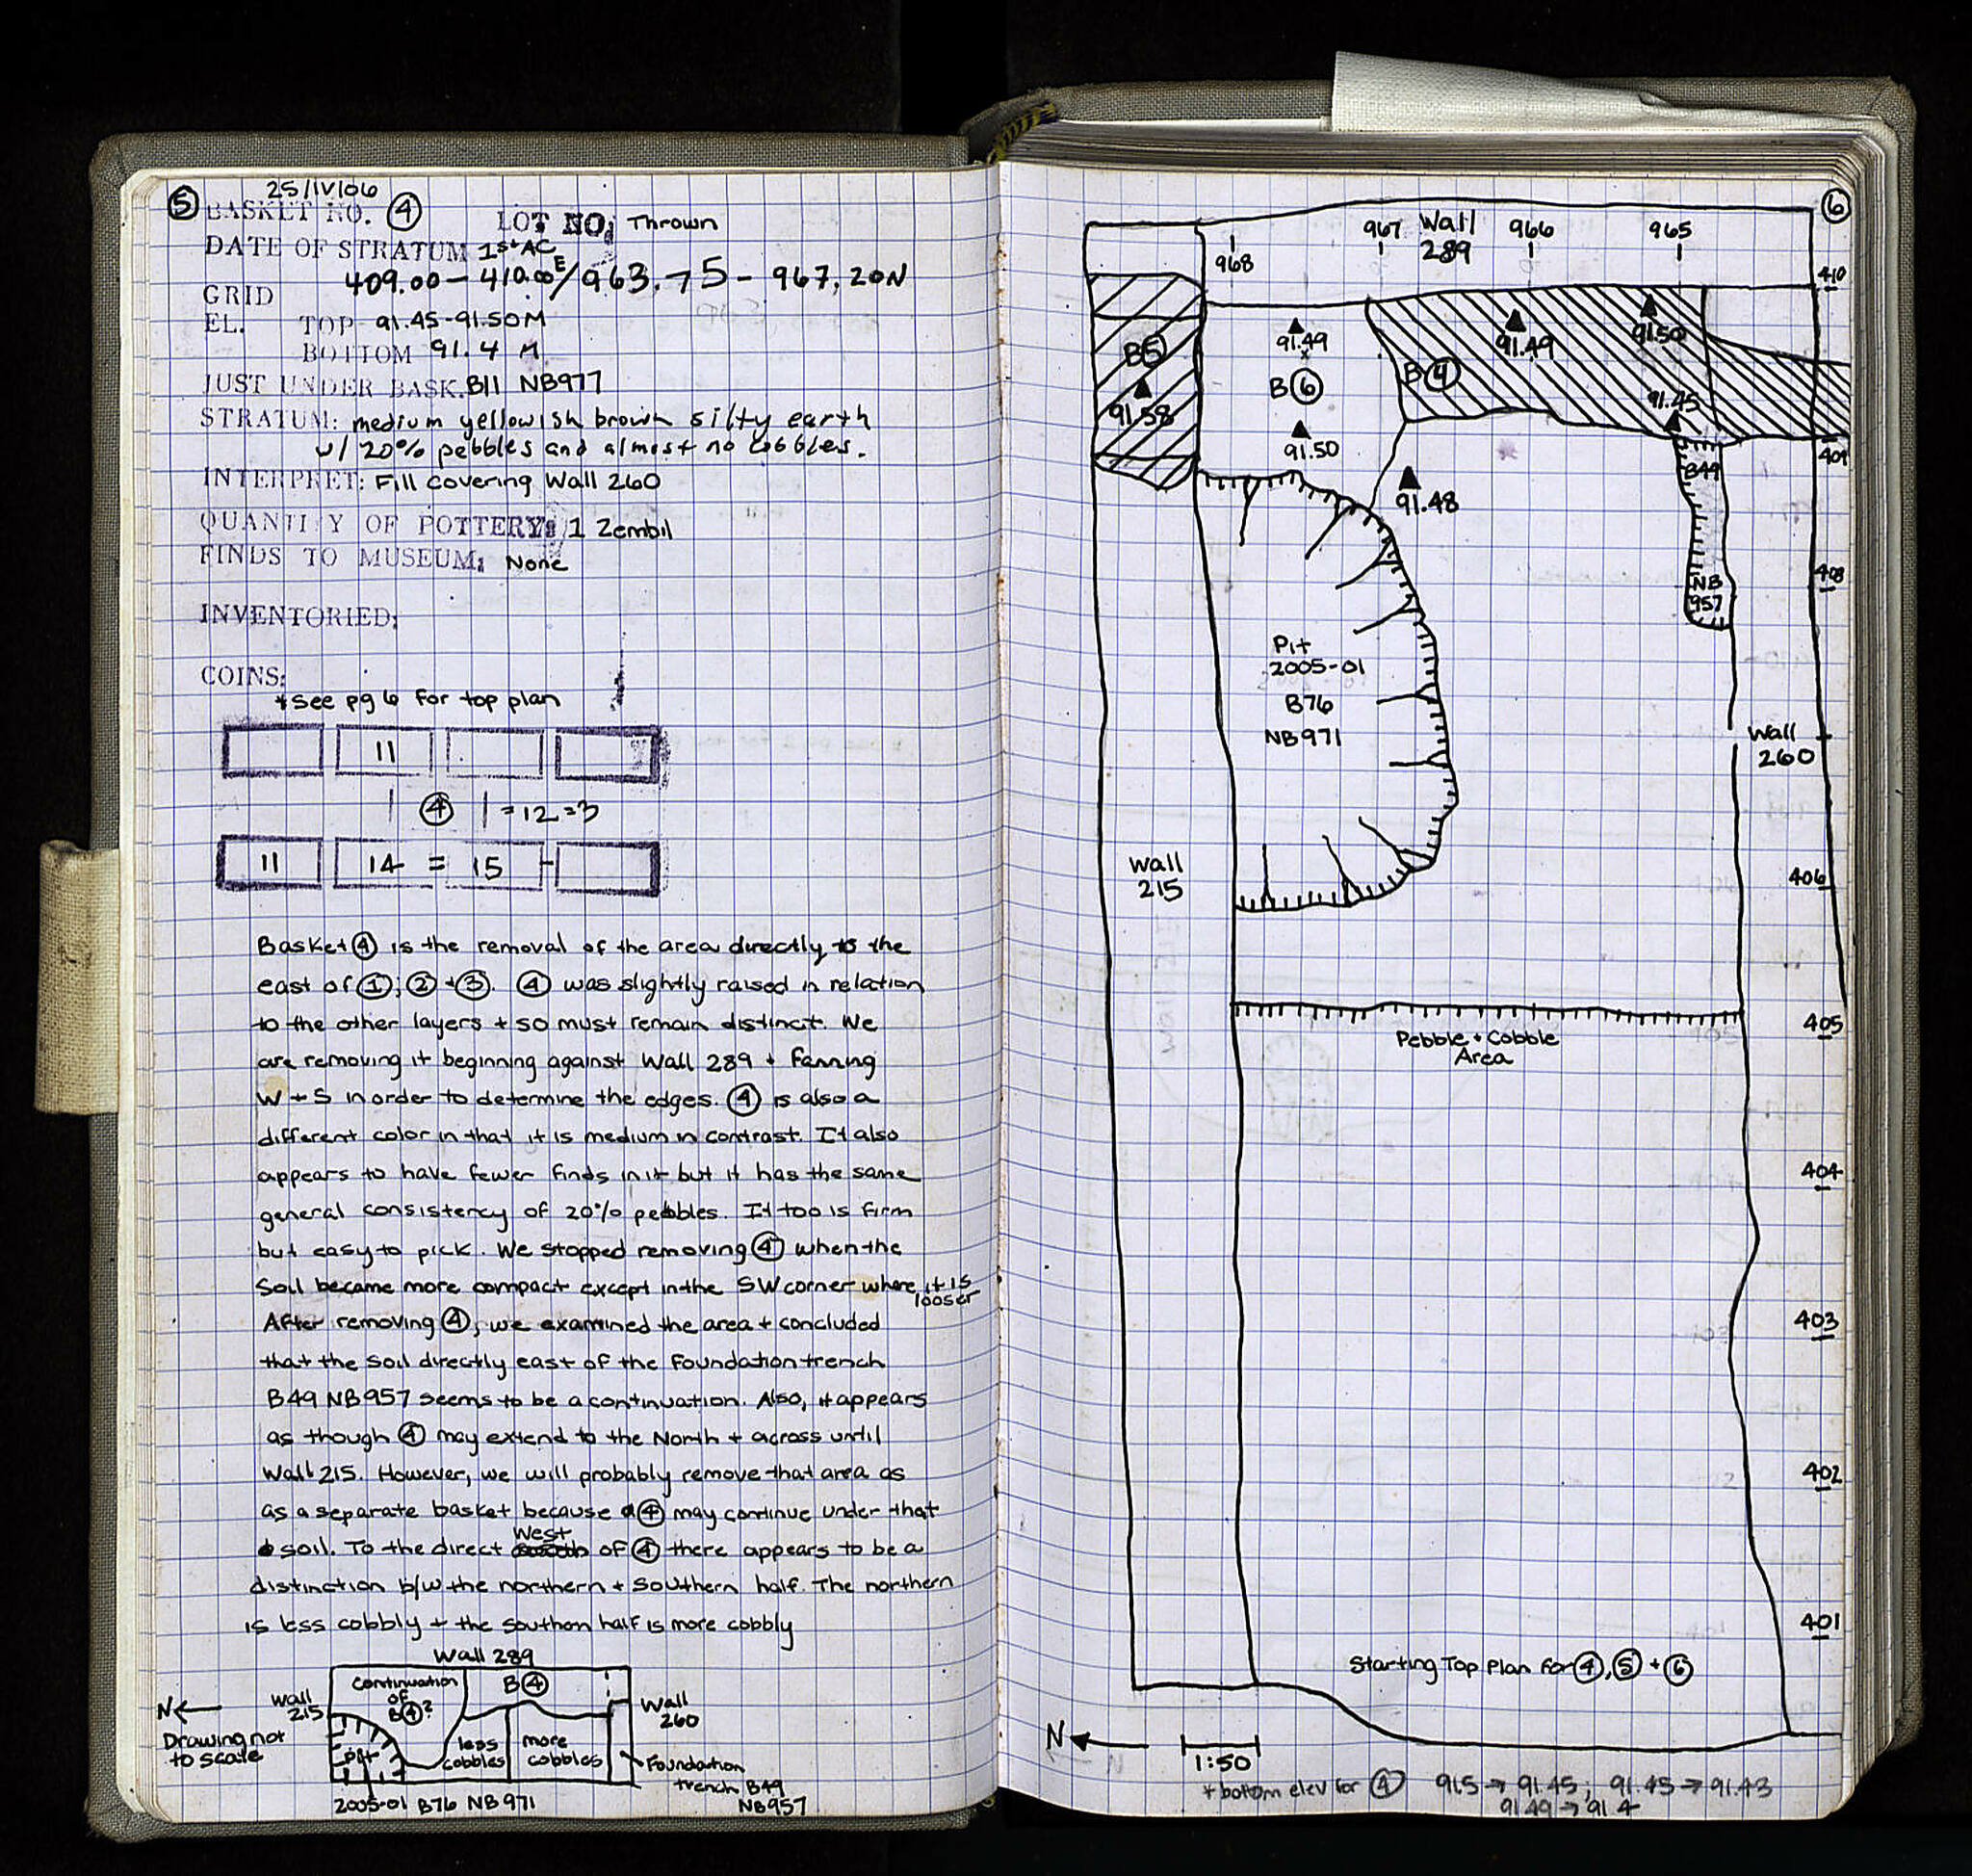 ⑤ 25/IV/06
BASKET NO. ④ LOT NO: Thrown
DATE OF STRATUM 1st AC
GRID 409.00 – 410.00E/963.75 – 967.20N
EL. TOP 91.45-91.50M
BOTTOM 91.4 M
JUST UNDER BASK. B11 NB977
STRATUM: medium yellowish brown silty earth
w/ 20% pebbles and almost no cobbles.
INTERPRET: Fill covering Wall 260
QUANTITY OF POTTERY: 1 Zembil
FINDS TO MUSEUM: None
INVENTORIED:
COINS:
*See pg 6 for top plan
11
④ =12=3
11 14 = 15
Basket ④ is the removal of the area directly to the
east of ①; ② + ③. ④ was slightly raised in relation
to the other layers + so must remain distinct. We
are removing it beginning against Wall 289 + fanning
W + S in order to determine the edges. ④ is also a
different color in that it is medium in contrast. It also
appears to have fewer finds in it but it has the same
general consistency of 20% pebbles. It too is firm
but easy to pick. We stopped removing ④ when the
soil became more compact except in the SW corner where it is
looser
After removing ④, we examined the area + concluded
that the soil directly east of the foundation trench
B49 NB957 seems to be a continuation. Also, it appears
as though ④ may extend to the North + across until
Wall 215. However, we will probably remove that area as
as a separate basket because ④ may continue under that
soil. To the direct West of ④ there appears to be a
distinction b/w the northern + southern half. The northern
is less cobbly + the southern half is more cobbly
Wall 289
N
Drawing not
to scale
Wall
215
Continuation
of
B④?
B④
Wall
260
Pit
less
cobbles
more
cobbles
Foundation
trench B49
NB957
2005-01 B76 NB971
⑥
968
967
Wall
289
966
965
410
B⑤
91.58
91.49
B⑥
91.50
B④
91.49
91.50
91.45
409
91.48
B49
NB
957
408
Pit
2005-01
B76
NB971
Wall
260
Wall
215
406
405
Pebble + Cobble
Area
404
403
402
401
Starting Top Plan for ④, ⑤ + ⑥
N
1:50
* bottom elev for ④ 91.5 → 91.45; 91.45 → 91.43
91.49 → 91.4